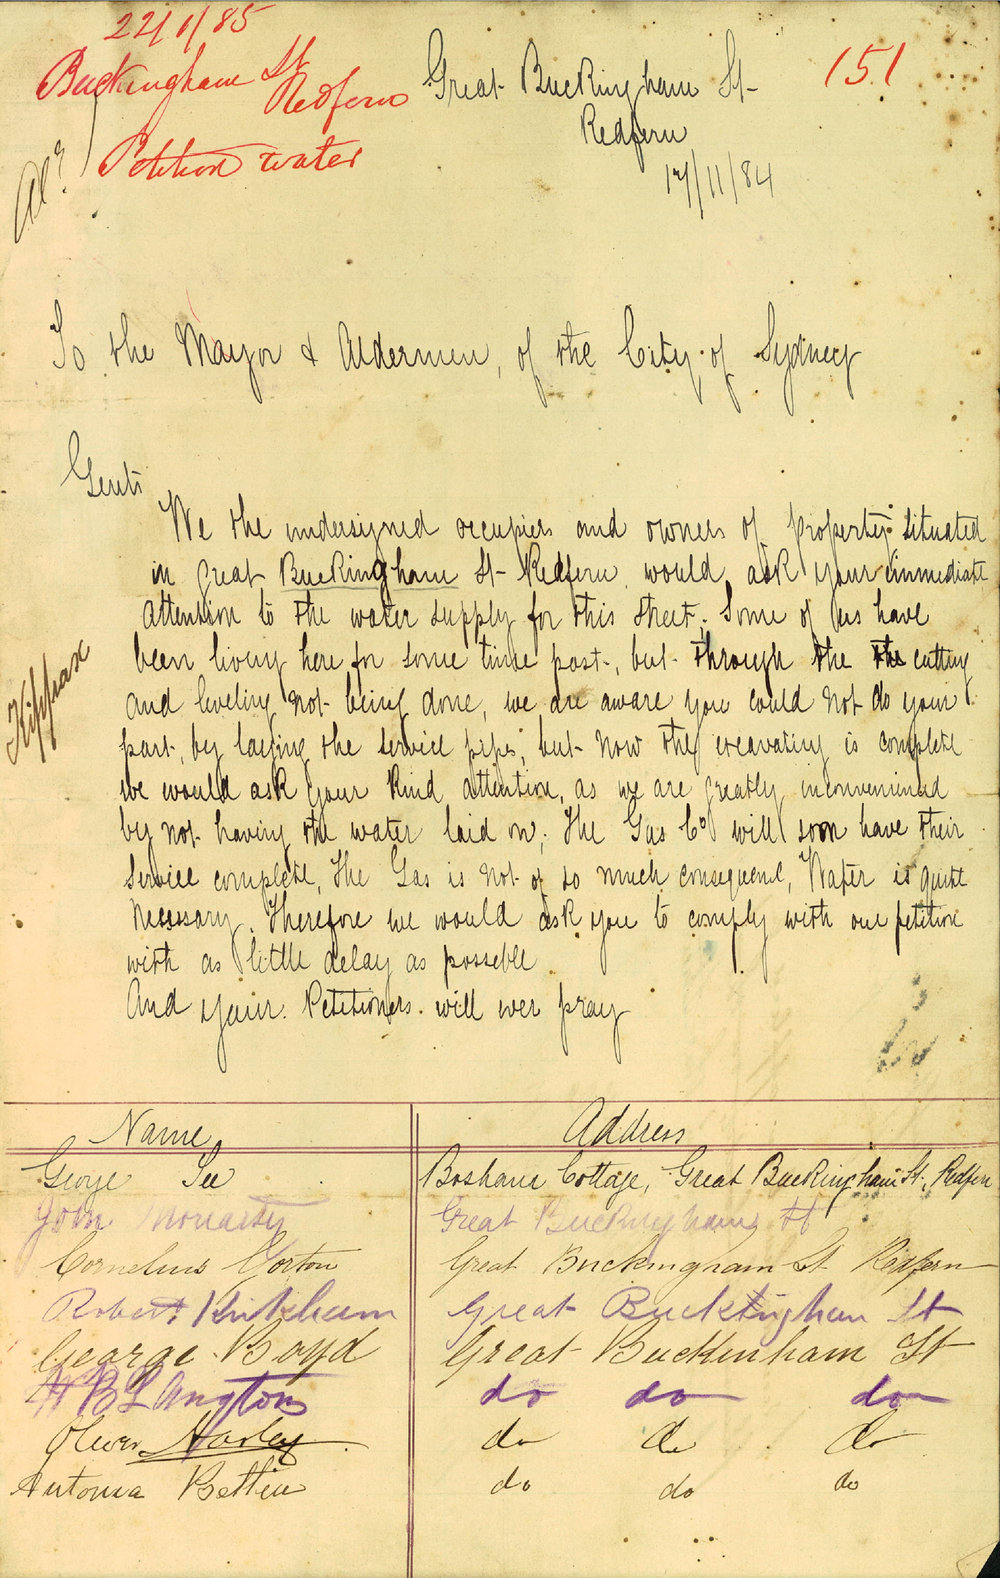 22/1/85
Buckingham St
Redfern
Petition water
Great Buckingham St
Redfern
17/11/84
151
Kippax
To the Mayor & Aldermen, of the City of Sydney
Gents
We the undersigned occupiers and owners of property situated
in Great Buckingham St Redfern would ask your immediate
attention to the water supply for this street. Some of us have
been living here for some time past, but through the the cutting
and leveling not being done, we are aware you could not do your
part, by laying the service pipes, but now the excavating is complete
we would ask your kind attention, as we are greatly inconvenienced
by not having the water laid on, The Gas Co will soon have their
service complete, The Gas is not of so much consequence, Water is quite
necessary. Therefore we would ask you to comply with our petition
with as little delay as posseble
And your Petitioners will ever pray
Name Address
George See Boshane Cottage, Great Buckingham St, Redfern
John Moriarty Great Buckingham St
Cornelius Gorton Great Buckingham St Redfern
Robert Great Buckingham St
George Boyd Great Buckinham St
H B Langton do do do
Oliver Harley do do do
Antonia Bettin do do do